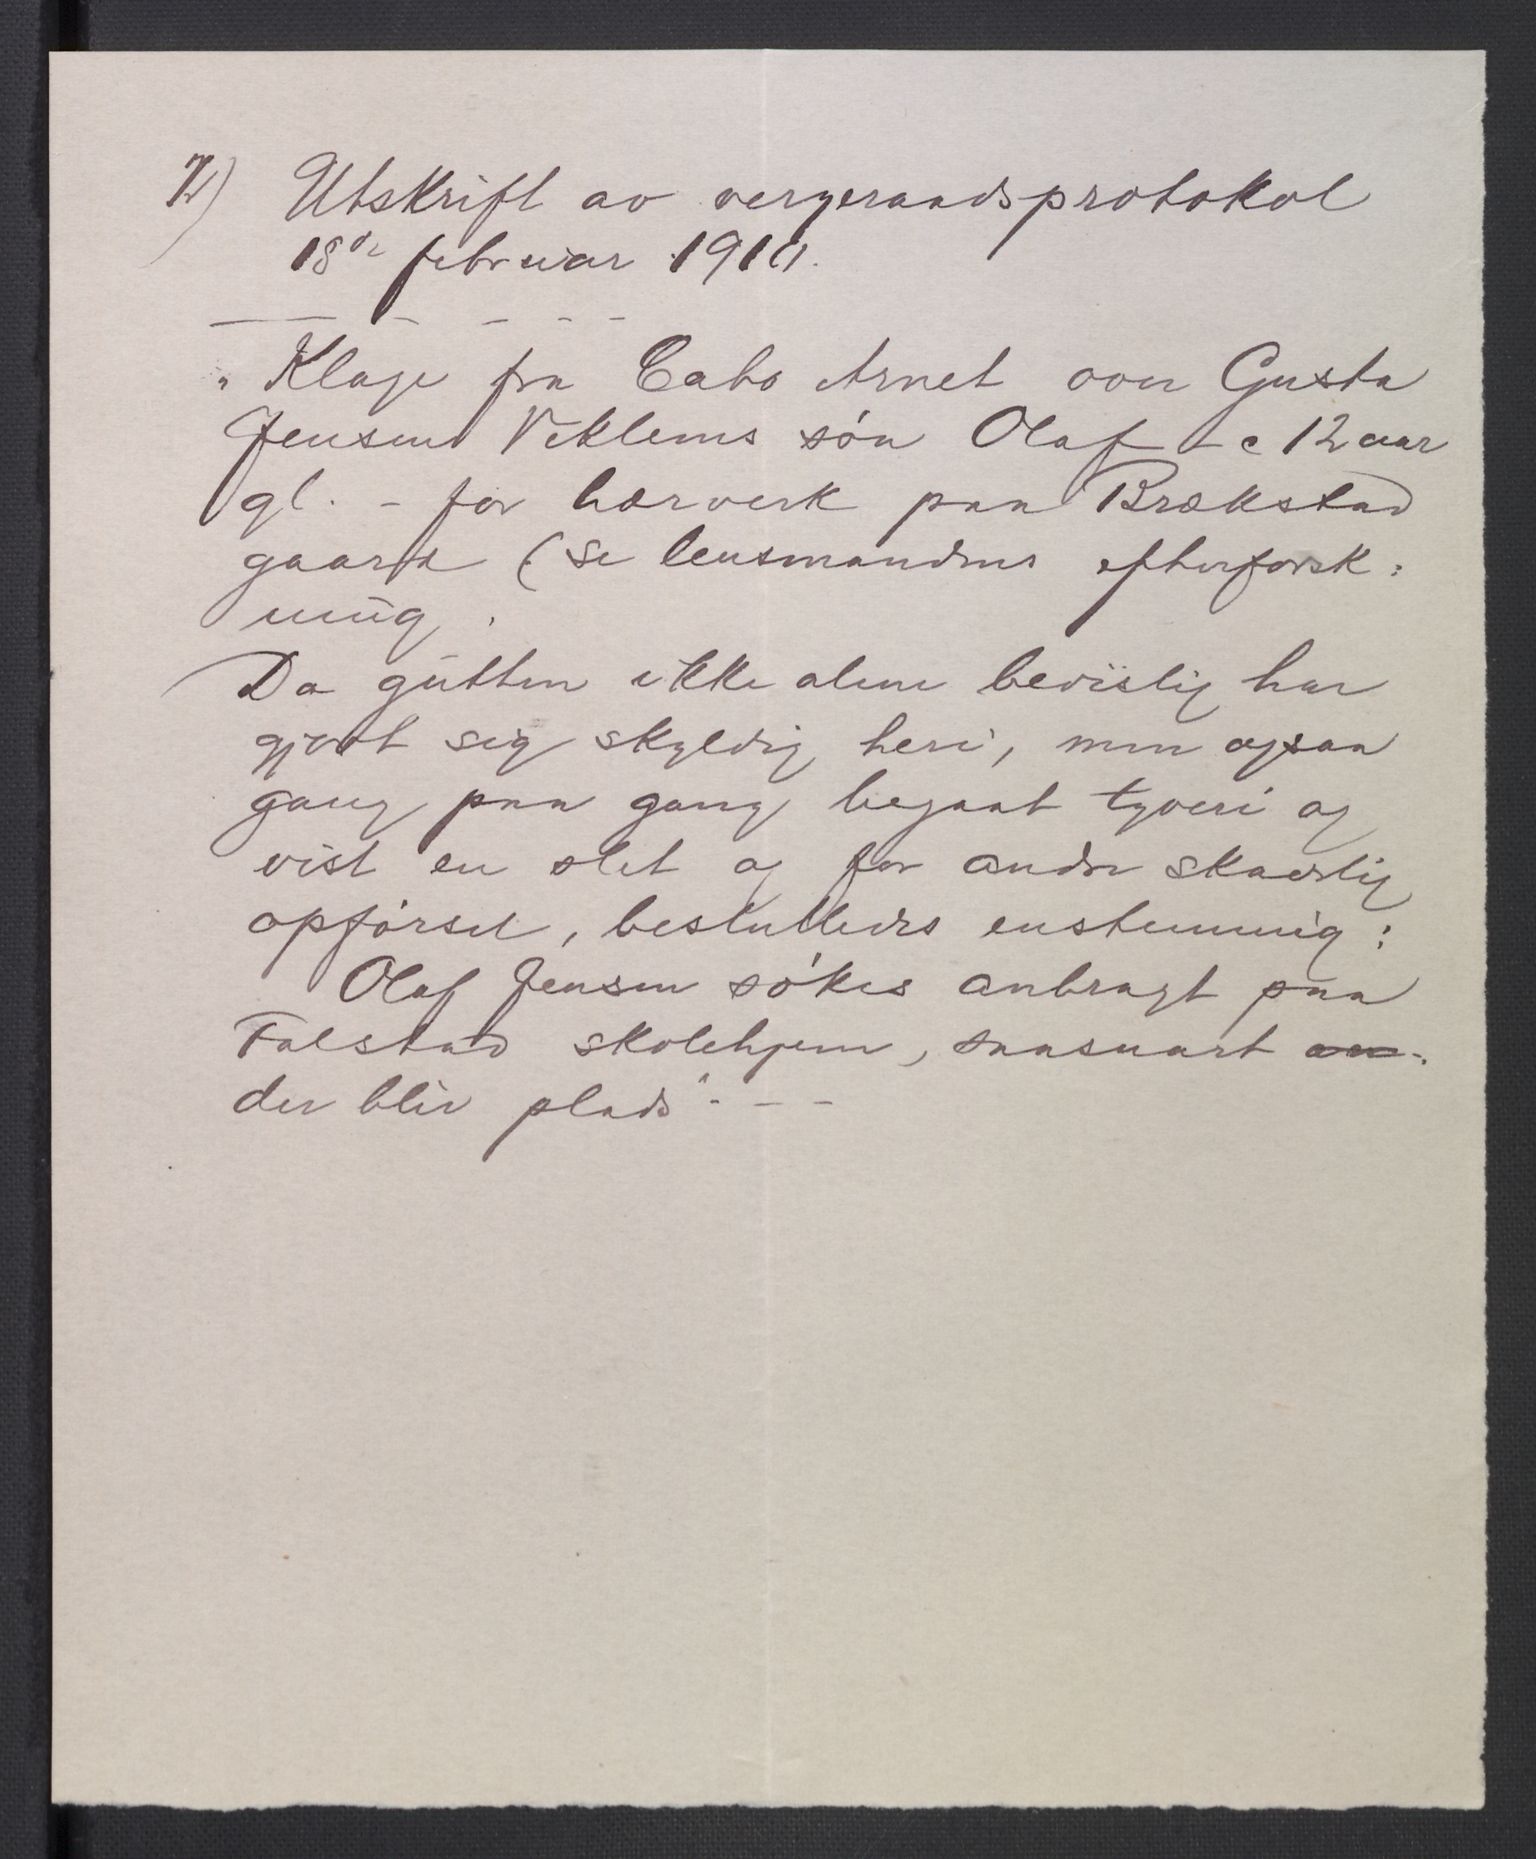 Utskrift av vergeraadsprotokol
18de februar 1910.
„Klage fra Cabo Arnet over Gusta
Jensen Veklems søn Olaf – c 12 aar
gl. – for hærverk paa Brækstad
gaard (se lensmandens efterforsk:
ning.
Da gutten ikke alene bevislig har
gjort sig skyldig heri, men ogsaa
gang paa gang begaat tyveri og
vist en slet og for andre skadelig
opførsel, besluttedes enstemmig:
Olaf Jensen søkes anbragt paa
Falstad skolehjem, saasnart
der blir plads" - - -